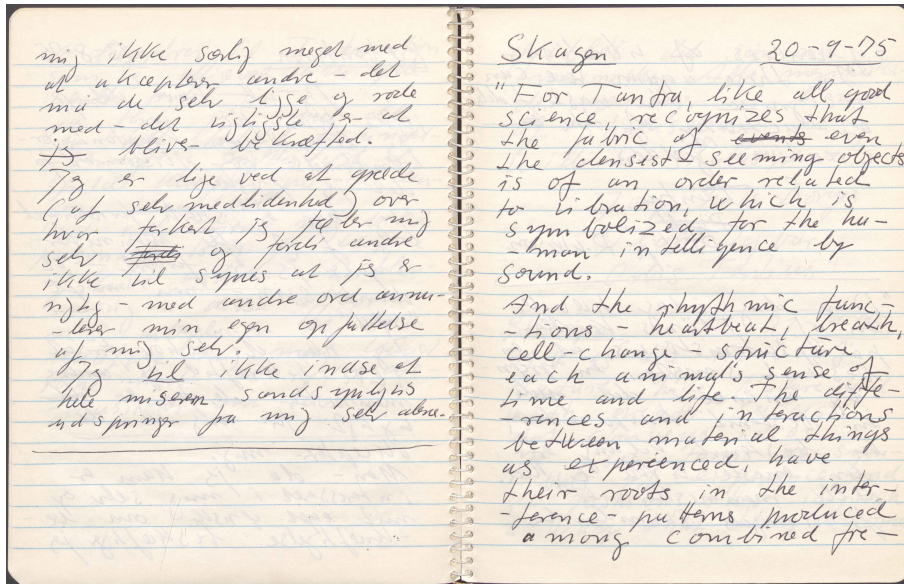 mig ikke særlig meget med
at akceptere andre - det
må de selv ligge og rode
med - det vigtigste er at
jeg bliver bekræftet.
Jeg er lige ved at græde
(af selvmedlidenhed) over
hvor forkert jeg føler mig
selv fordi og fordi andre
ikke vil synes at jeg er
rigtig - med andre ord annu-
-lerer min egen opfattelse
af mig selv.
Jeg vil ikke indse at
hele miseren sandsynligvis
udspringer fra mig selv alene.
Skagen 20-9-75
"For Tantra, like all good
science, recognizes that
the fabric of events even
the densest-seeming objects
is of an order related
to vibration, which is
symbolized for the hu-
-man intelligence by
sound.
And the rhythmic func-
-tions - heartbeat, breath,
cell-change - structure
each animal's sense of
time and life. The diffe-
-rences and interactions
between material things
as experienced, have
their roots in the inter-
-ference-patterns produced
among combined fre-